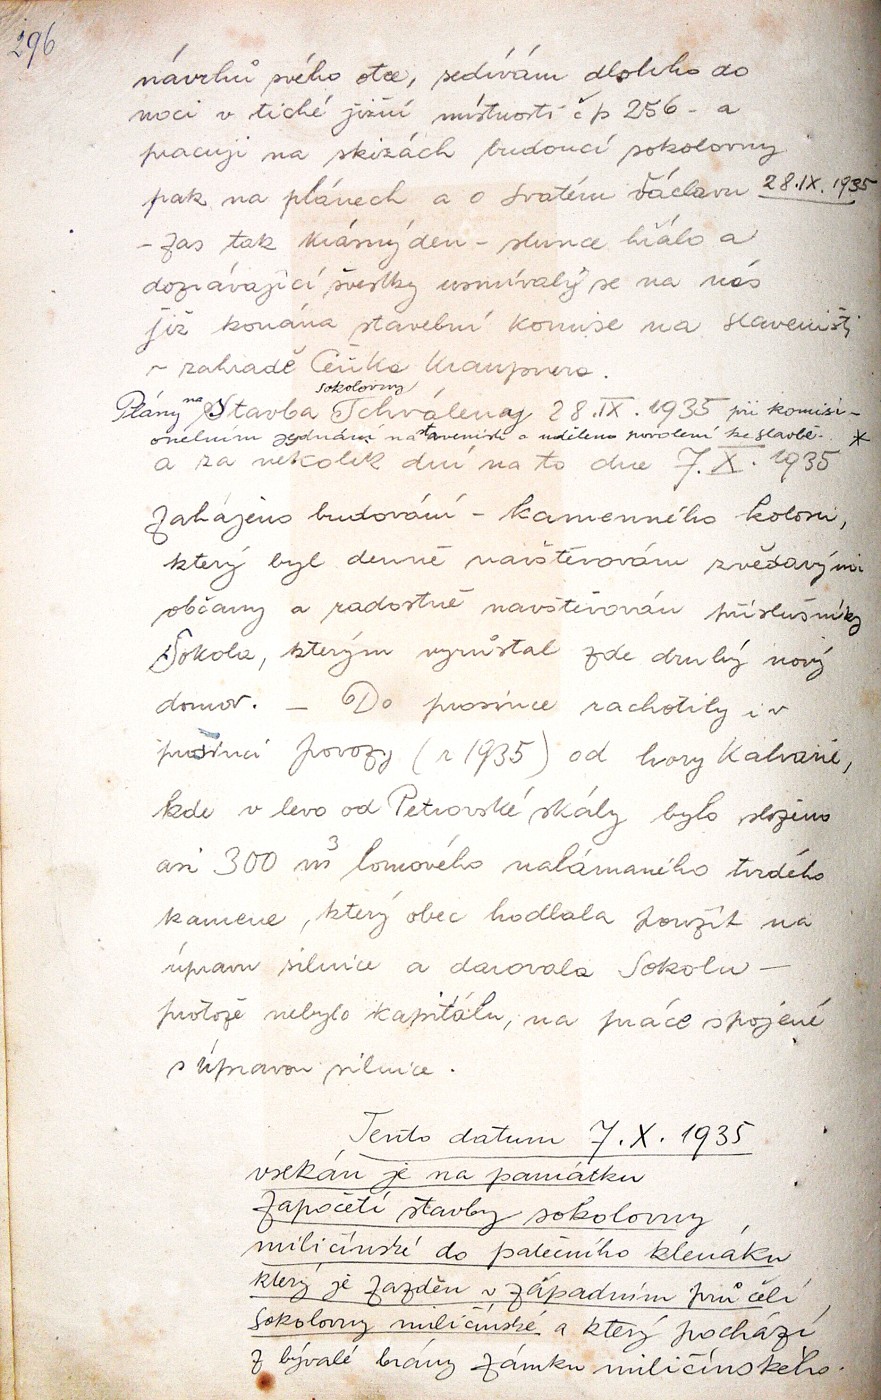 296
návrhů svého otce, sedívám dloho do
noci v tiché jižní místnosti čp 256 - a
pracuji na skizách budoucí sokolovny
pak na plánech a o svatém Václavu 28.IX.1935
- zas tak krásný den - slunce hřálo a
dozrávající švestky usmívaly se na nás
již konána stavební komise na staveništi
v zahradě Čeňka Kraupnera.
sokolovny
Plány na Stavba schváleny 28.IX.1935 při komisi-
onelním jednání na staveništi a uděleno povolení ke stavbě. *
a za několik dní na to dne 7.X.1935
zahájeno budování - kamenného kolosu,
který byl denně navštěvován zvědavými
občany a radostně navštěvován příslušníky
Sokola, kterým vyrůstal zde druhý nový
domov. - Do prosince rachotily i v
prosinci povozy (r 1935) od hory Kalvarie,
kde v levo od Petrovské skály bylo složeno
asi 300 m³ lomového nalámaného tvrdého
kamene, který obec hodlala použít na
úpravu silnice a darovala Sokolu -
protože nebylo kapitálu, na práce spojené
s úpravou silnice.
Tento datum 7.X.1935
vsekán je na památku
započetí stavby sokolovny
miličínské do patečního klenáku
který je zazděn v západním průčelí,
sokolovny miličínské a který pochází
z bývalé brány zámku miličínského.